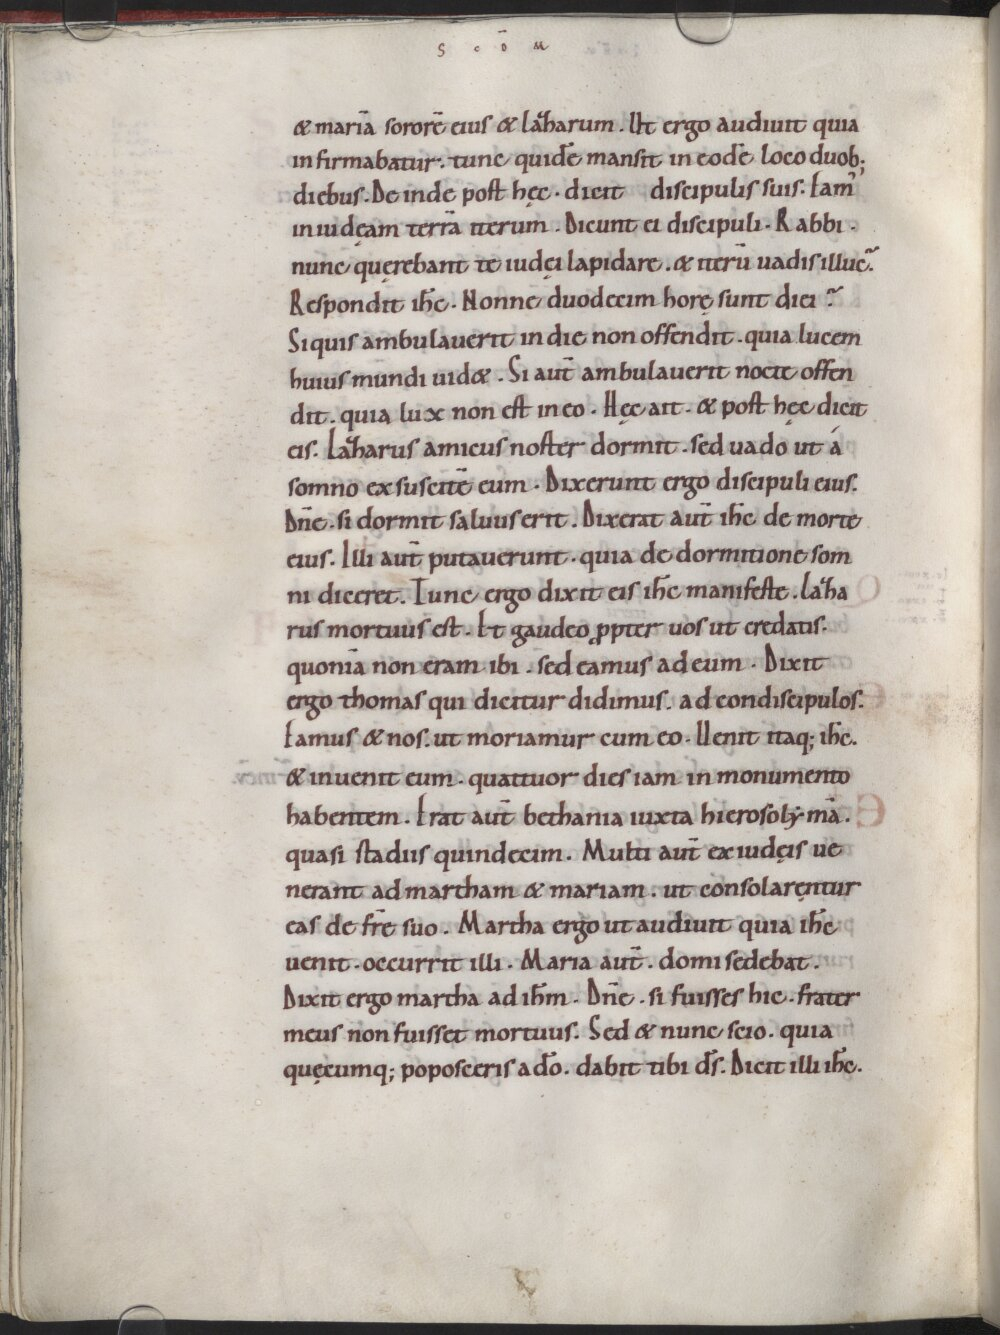 S c̄ D̄ M
& mariā sororē eius & laharum. Ut ergo audiuit quia
infirmabatur. tunc quidē mansit in eodē loco duob;
diebus. Deinde post hęc. dicit discipulis suis. Eam'
in iudęam terrā iterum. Dicunt ei discipuli. Rabbi.
nunc quęrebant te iudęi lapidare. & iterū uadis illuc?
Respondit ihc̄. Nonne duodecim horę sunt diei?
Siquis ambulauerit in die non offendit. quia lucem
huius mundi uid&. Si aut̄ ambulauerit nocte offen
dit. quia lux non est in eo. Hęc ait. & post hęc dicit
eis. Laharus amicus noster dormit. sed uado ut á
somno exsuscitē eum. Dixerunt ergo discipuli eius.
Dn̄e. si dormit saluus erit. Dixerat aut̄ ihc̄ de morte
eius. Illi aut̄ putauerunt. quia de dormitione som
ni diceret. Tunc ergo dixit eis ihc̄ manifeste. Laha
rus mortuus est. Et gaudeo ꝓpter uos ut credatis.
quoniā non eram ibi. sed eamus ad eum. Dixit
ergo thomas qui dicitur didimus. ad condiscipulos.
Eamus & nos. ut moriamur cum eo. Uenit itaq; ihc̄.
& inuenit eum. quattuor dies iam in monumento
habentem. Erat aut̄ bethania iuxta hierosolymā.
quasi stadiis quindecim. Multi aut̄ ex iudęis ue
nerant ad martham & mariam. ut consolarentur
eas de fr̄e suo. Martha ergo ut audiuit quia ihc̄
uenit. occurrit illi. Maria aut̄. domi sedebat.
Dixit ergo martha ad ihm̄. Dn̄e. si fuisses hic. frater
meus non fuisset mortuus. Sed & nunc scio. quia
quęcumq; poposceris a dō. dabit tibi ds̄. Dicit illi ihc̄.